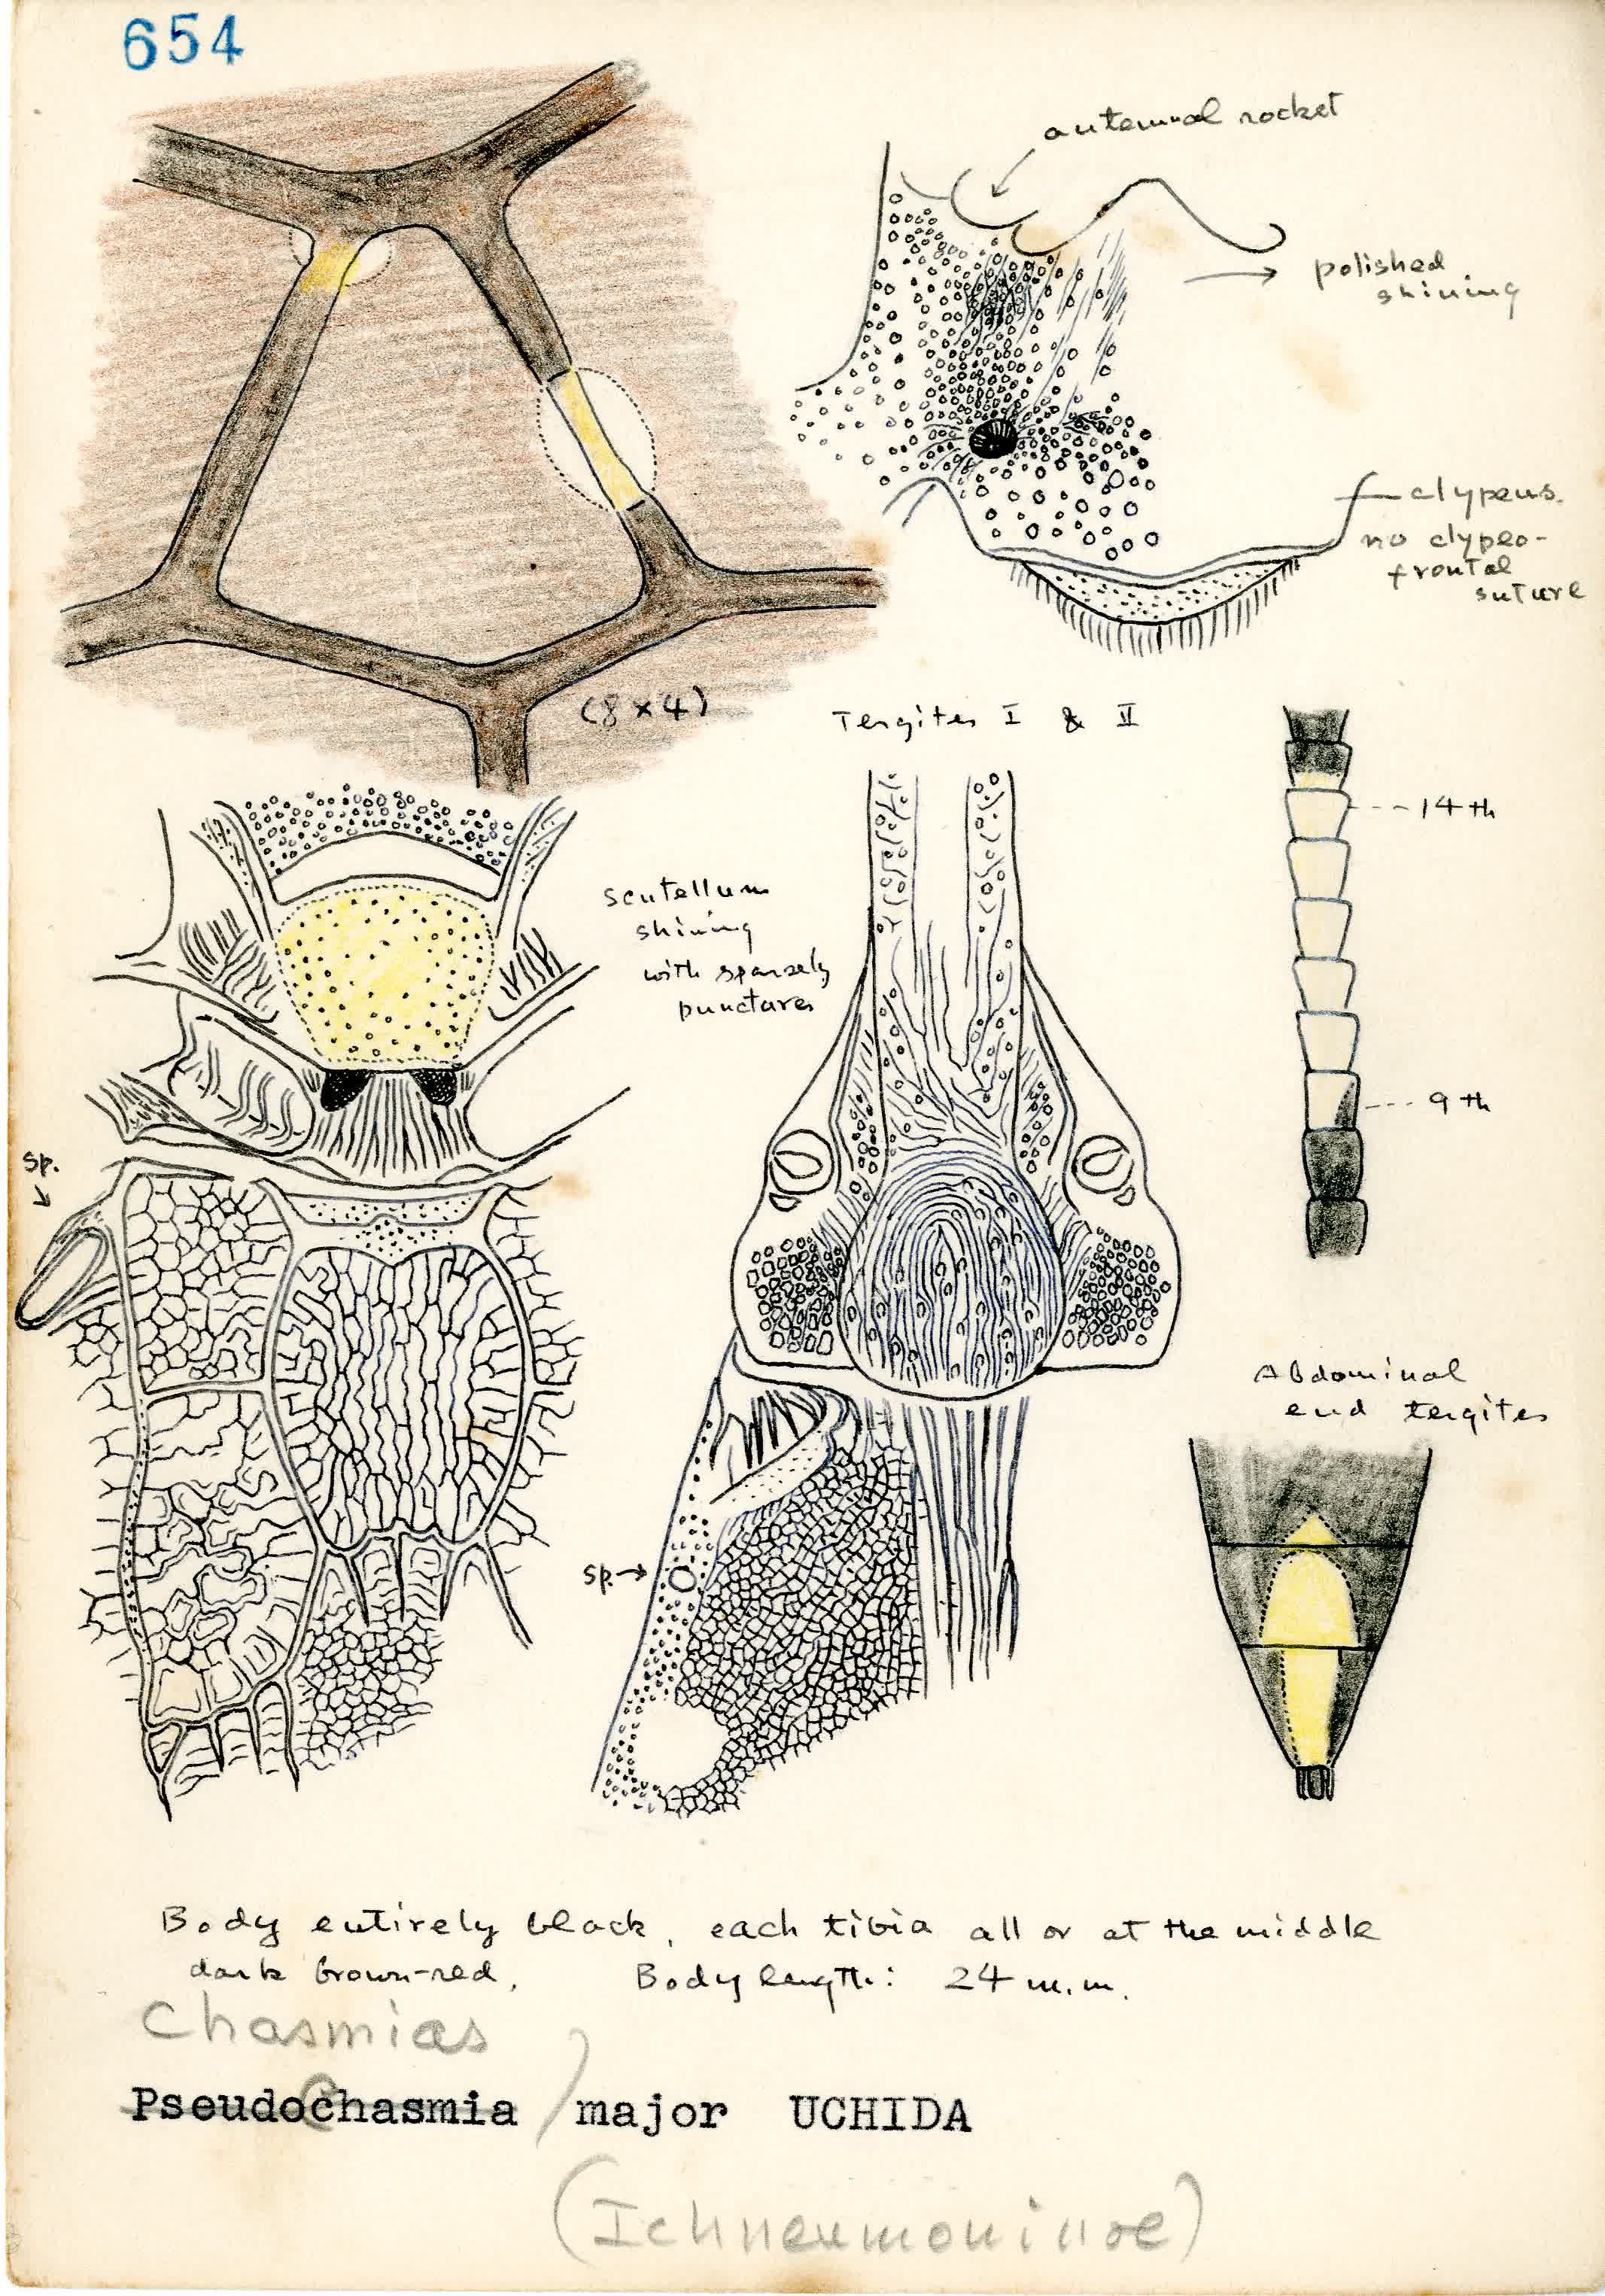 654
antennal socket
polished
shining
clypeus.
no clypeo-
frontal
suture
(8 x 4)
Tergites I & II
14 th
9 th
scutellum
shining
with sparsely
punctures
sp.
sp.
Abdominal
end tergites
Body entirely black, each tibia all or at the middle
dark brown-red. Body length: 24 m.m.
Chasmias
PseudoChasmia major UCHIDA
(Ichneumoninae)